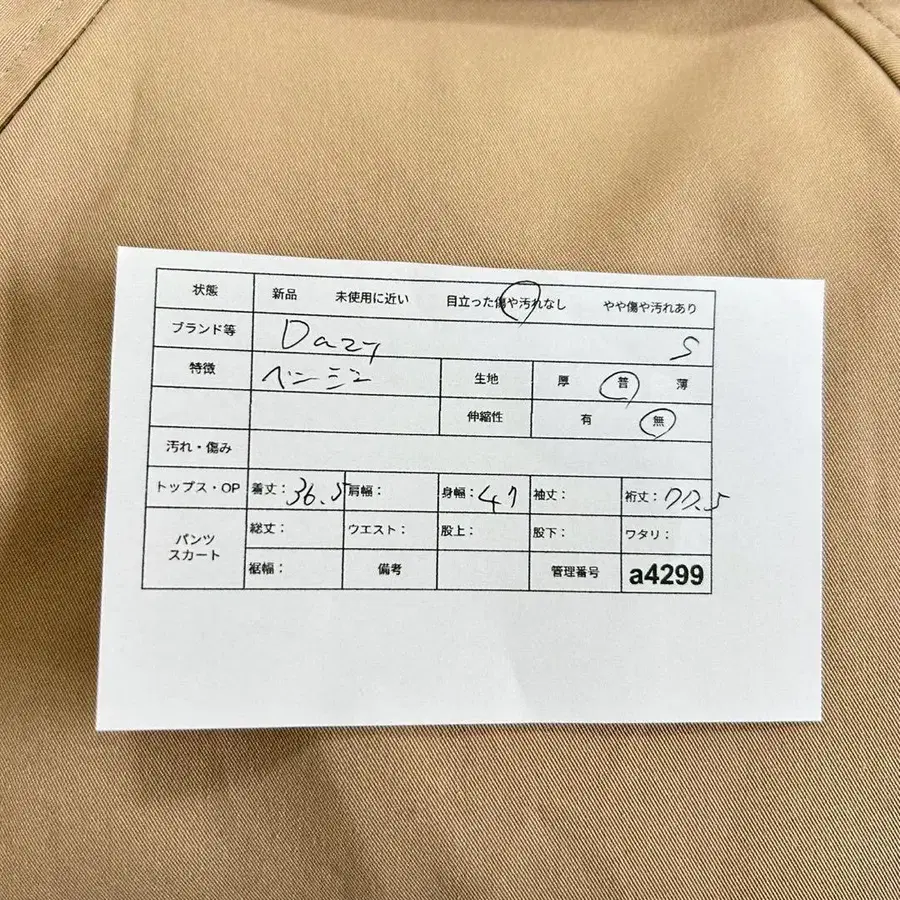 状態 新品 未使用に近い 目立った傷や汚れなし やや傷や汚れあり
ブランド等 Dazy S
特徴 生地 厚 普 薄
伸縮性 有 無
汚れ・傷み
トップス・OP 着丈： 36.5 肩幅： 身幅： 47 袖丈： 裄丈： 77.5
パンツ スカート 総丈： ウエスト： 股上： 股下： ワタリ：
裾幅： 備考 管理番号 a4299